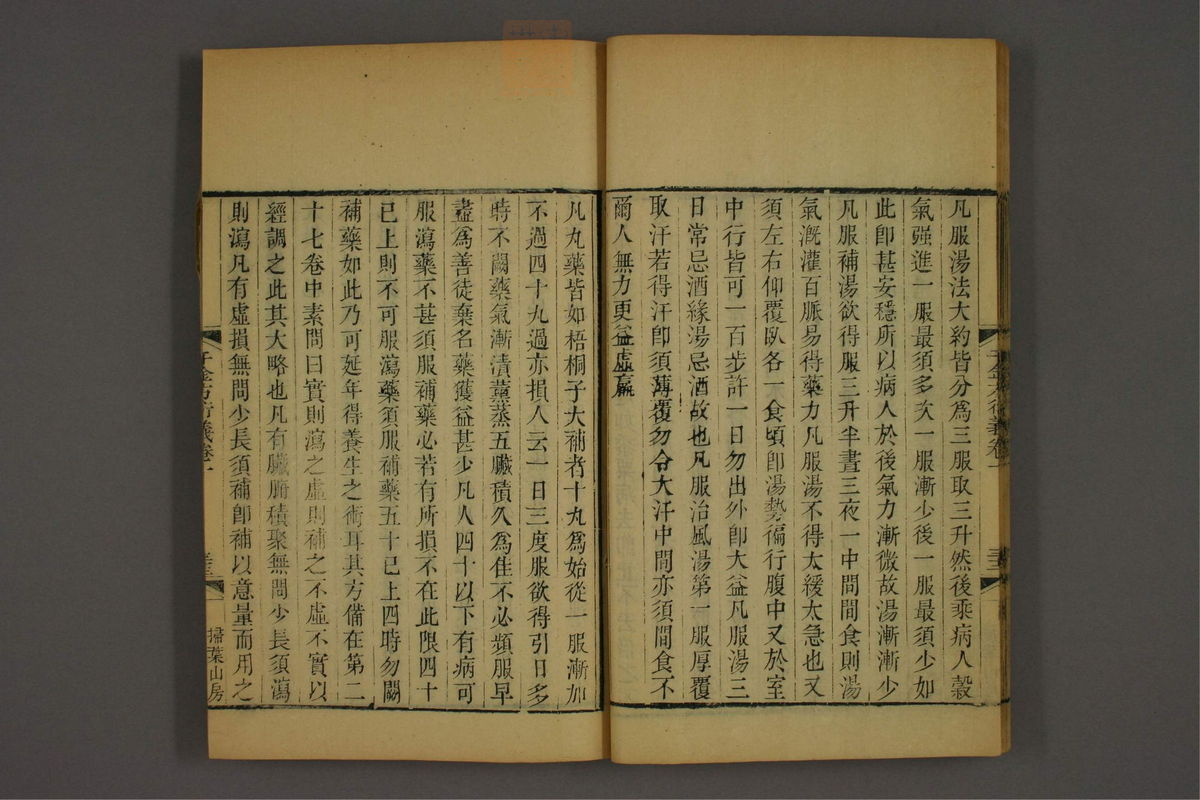 凡服湯法大約皆分為三服取三升然後乘病人穀
氣强進一服最須多次一服漸少後一服最須少如
此卽甚安穩所以病人於後氣力漸微故湯漸漸少
凡服補湯欲得服三升半晝三夜一中間間食則湯
氣漑灌百脈易得藥力凡服湯不得太緩太急也又
須左右仰覆臥各一食頃卽湯勢徧行腹中又於室
中行皆可一百步許一日勿出外卽大益凡服湯三
日常忌酒緣湯忌酒故也凡服治風湯第一服厚覆
取汗若得汗卽須薄覆勿令大汗中間亦須間食不
爾人無力更益虛羸
凡丸藥皆如梧桐子大補者十丸為始從一服漸加
不過四十丸過亦損人云一日三度服欲得引日多
時不闕藥氣漸漬薰蒸五臟積久為佳不必頻服早
盡為善徒棄名藥獲益甚少凡人四十以下有病可
服瀉藥不甚須服補藥必若有所損不在此限四十
已上則不可服瀉藥須服補藥五十已上四時勿闕
補藥如此乃可延年得養生之術耳其方備在第二
十七卷中素問曰實則瀉之虛則補之不虛不實以
經調之此其大略也凡有臟腑積聚無問少長須瀉
則瀉凡有虛損無問少長須補卽補以意量而用之
千金方衍義卷一
掃葉山房